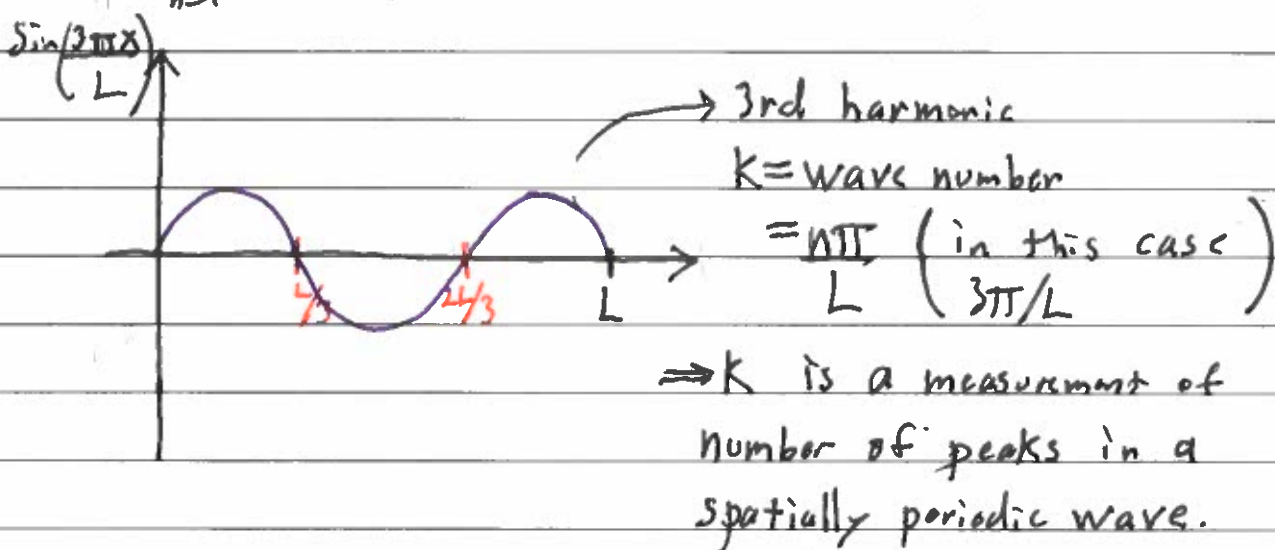 Sin(3πx/L)
3rd harmonic
K = wave number
= nπ/L (in this case 3π/L)
L/3 2L/3 L
⇒ K is a measurement of
number of peaks in a
spatially periodic wave.